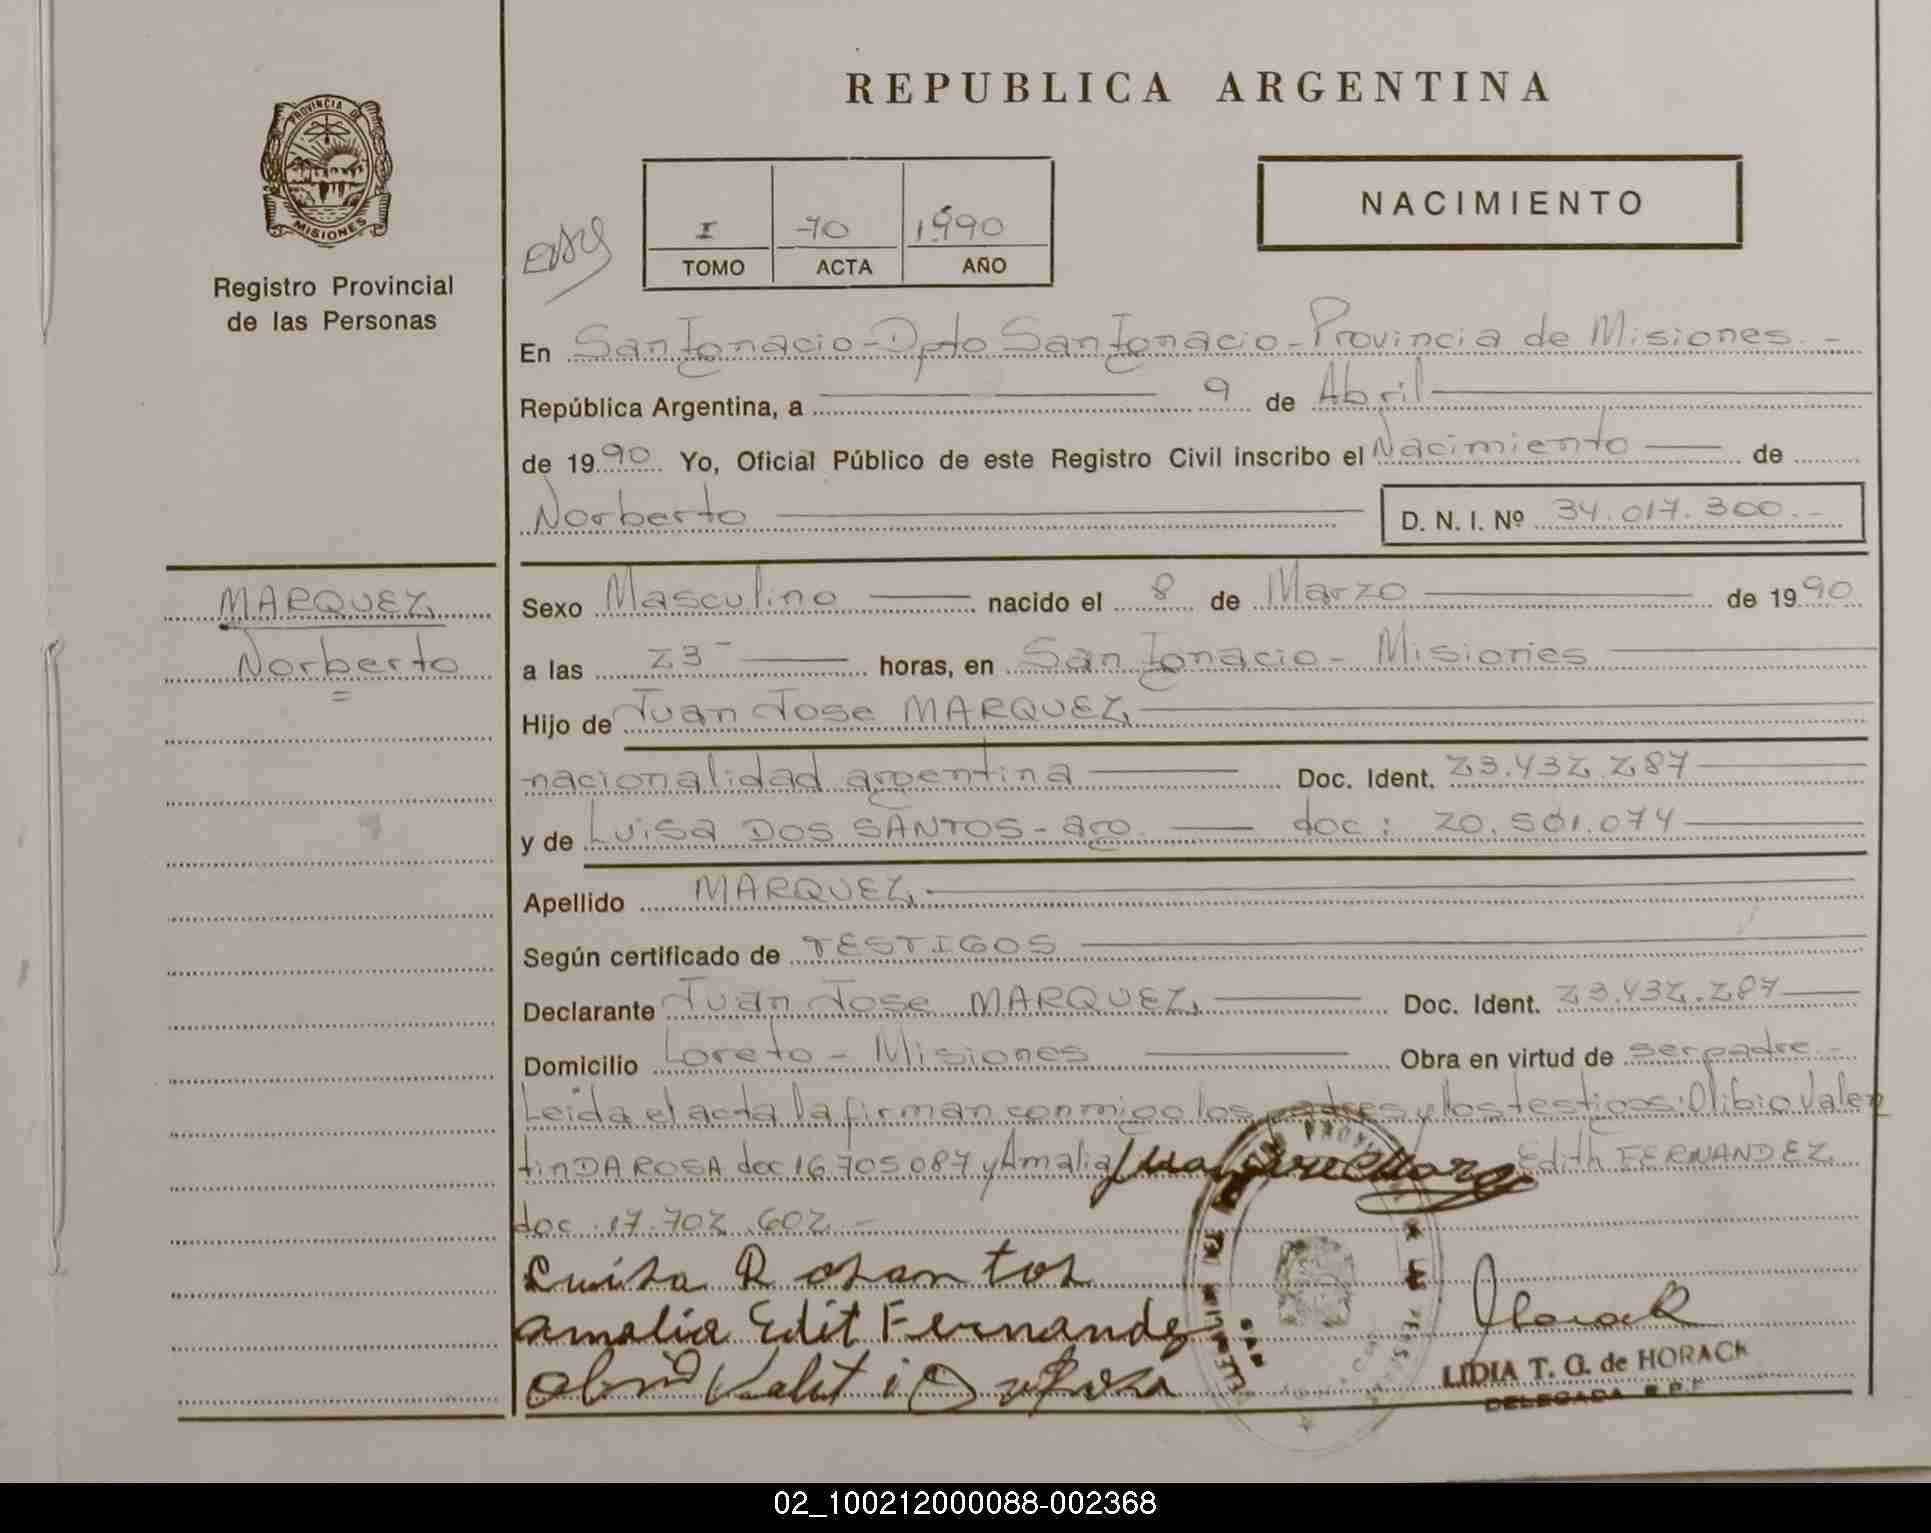 REPUBLICA ARGENTINA
PROVINCIA DE
MISIONES
Registro Provincial
de las Personas
I 70 1990
TOMO ACTA AÑO
NACIMIENTO
En San Ignacio - Dpto San Ignacio - Provincia de Misiones. -
República Argentina, a 9 de Abril
de 1990 Yo, Oficial Público de este Registro Civil inscribo el Nacimiento de
Norberto D. N. I. Nº 34.017.300.-
MARQUEZ
Norberto
Sexo Masculino nacido el 8 de Marzo de 1990
a las 23 horas, en San Ignacio - Misiones
Hijo de Juan Jose MARQUEZ
nacionalidad argentina Doc. Ident. 23.432.287
y de Luisa DOS SANTOS - arg. doc: 20.501.074
Apellido MARQUEZ
Según certificado de TESTIGOS
Declarante Juan Jose MARQUEZ Doc. Ident. 23.432.287
Domicilio Loreto - Misiones Obra en virtud de ser padre.-
Leida el acta la firman conmigo los padres y los testigos: Olibio Valen
tin DA ROSA doc 16.705.087 y Amalia Edith FERNANDEZ
doc. 17.702.602.-
Luisa D osantos
Amalia Edit Fernandez
LIDIA T. G. de HORACK
DELEGADA R.P.P.
02_100212000088-002368